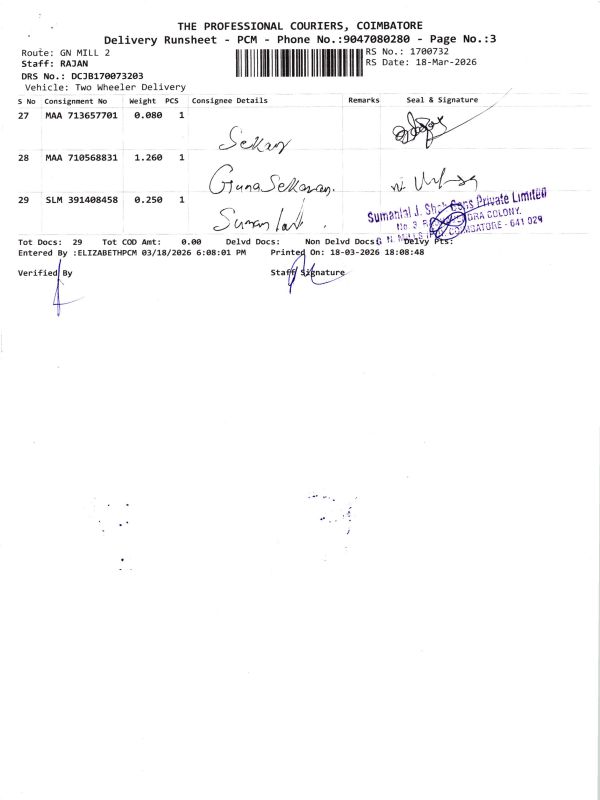 THE PROFESSIONAL COURIERS, COIMBATORE
Delivery Runsheet - PCM - Phone No.:9047080280 - Page No.:3
Route: GN MILL 2
RS No.: 1700732
Staff: RAJAN
RS Date: 18-Mar-2026
DRS No.: DCJB170073203
Vehicle: Two Wheeler Delivery
S No Consignment No Weight PCS Consignee Details Remarks Seal & Signature
27 MAA 713657701 0.080 1
Sekar
28 MAA 710568831 1.260 1
GunaSekaran.
29 SLM 391408458 0.250 1
Suman lal
Sumanlal J. Shah Sons Private Limited
COLONY.
COIMBATORE - 641 029
Tot Docs: 29 Tot COD Amt: 0.00 Delvd Docs: Non Delvd Docs: Delvy Pts:
Entered By :ELIZABETHPCM 03/18/2026 6:08:01 PM Printed On: 18-03-2026 18:08:48
Verified By Staff Signature